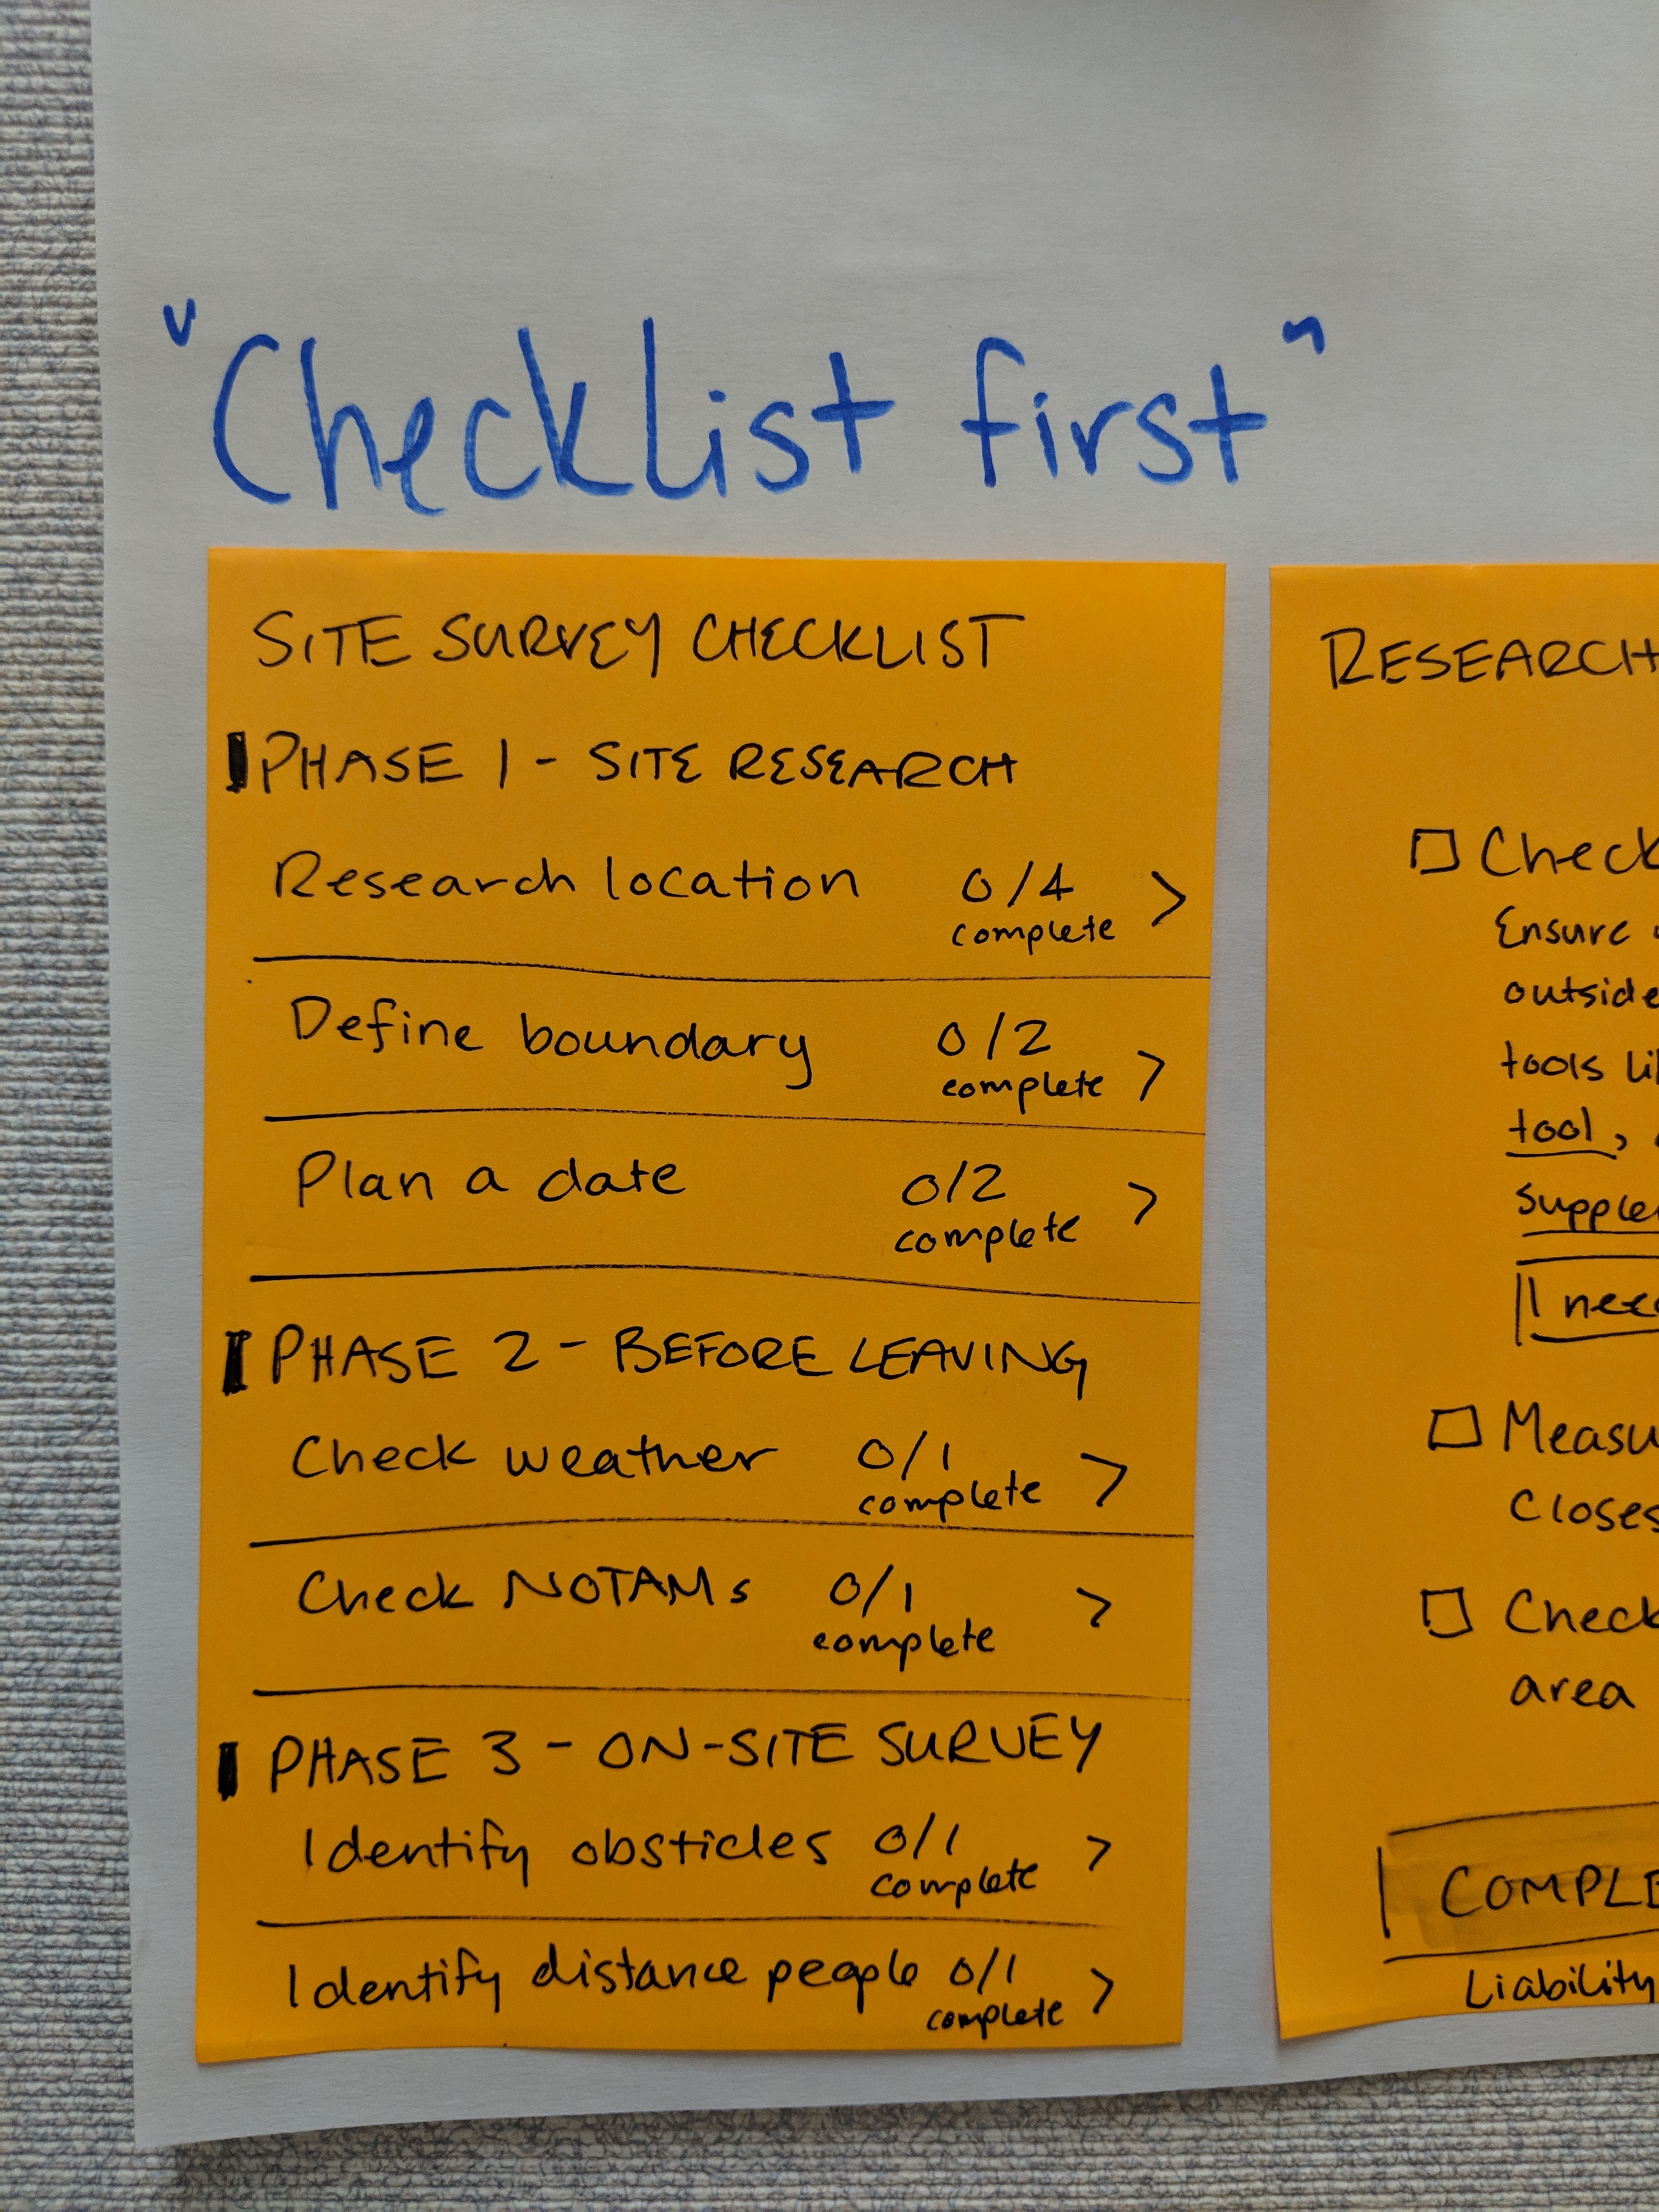 "Checklist first"
SITE SURVEY CHECKLIST
PHASE 1 - SITE RESEARCH
Research location 0/4 >
complete
Define boundary 0/2 >
complete
Plan a date 0/2 >
complete
PHASE 2 - BEFORE LEAVING
Check weather 0/1 >
complete
Check NOTAMs 0/1 >
complete
PHASE 3 - ON-SITE SURVEY
Identify obsticles 0/1 >
complete
Identify distance people 0/1 >
complete
RESEARCH
Check
Ensure
outside
tools
tool,
I need
area
Liability